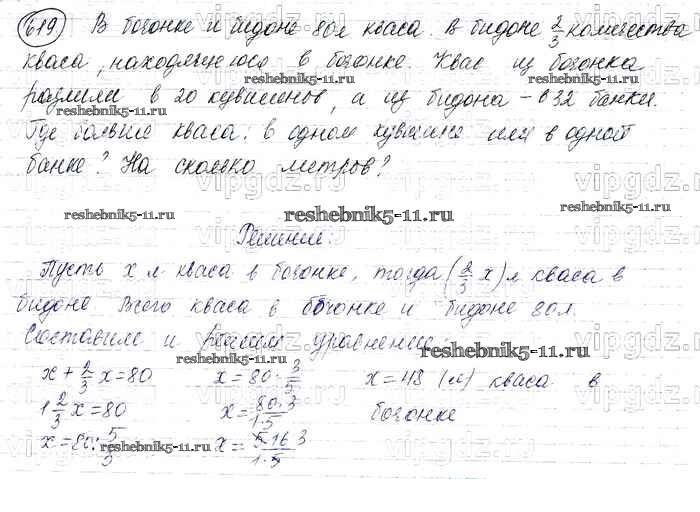 619) В бочонке и бидоне 80л кваса. В бидоне 2/3 количества
кваса, находящегося в бочонке. Квас из бочонка
reshebnik5-11.ru reshebnik5-11.ru
разлили в 20 кувшинов, а из бидона – в 32 банки.
Где больше кваса: в одном кувшине или в одной
банке? На сколько метров?
vipgdz.ru
reshebnik5-11.ru reshebnik5-11.ru reshebnik5-11.ru
Решение:
Пусть х л кваса в бочонке, тогда (2/3 х) л кваса в
бидоне Всего кваса в бочонке и бидоне 80л.
Составим и решим уравнение:
reshebnik5-11.ru reshebnik5-11.ru
х + 2/3 х = 80 х = 80 · 3/5 х = 48 (л) кваса в
1 2/3 х = 80 х = 80·3/1·5 бочонке
х = 80 : 5/3 х = 5·16·3/1·5
reshebnik5-11.ru reshebnik5-11.ru